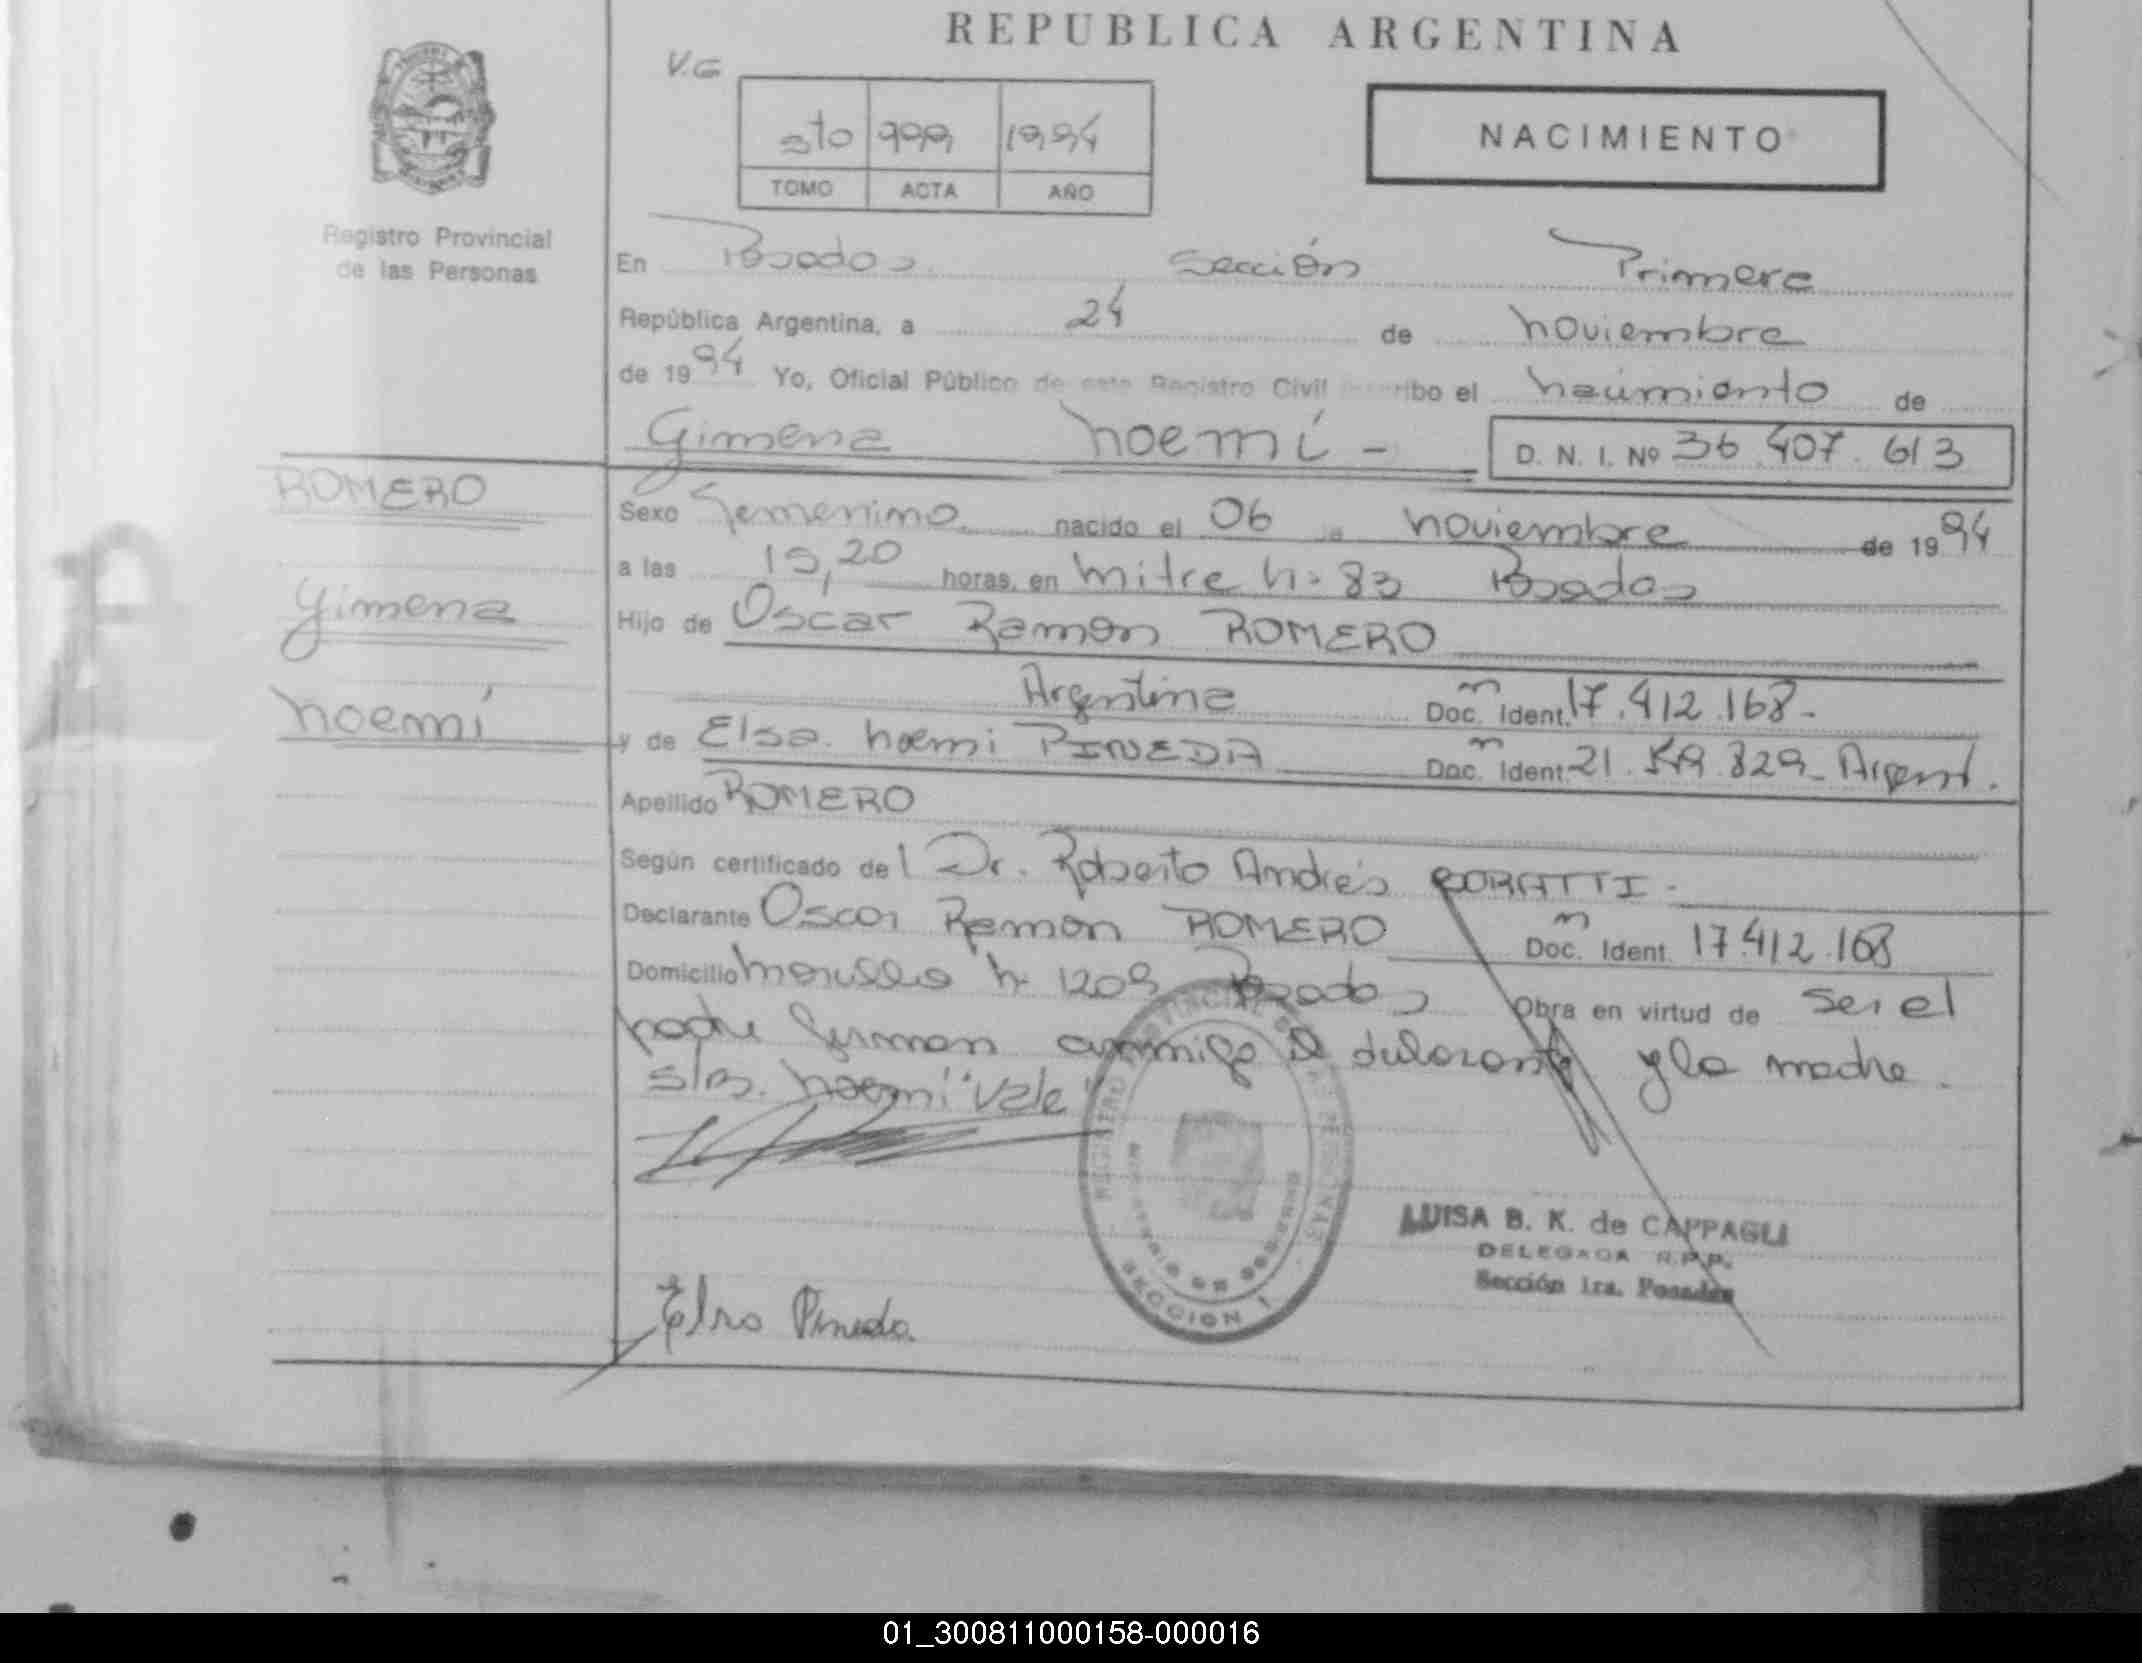 REPUBLICA ARGENTINA
V.G
5to 999 1994
TOMO ACTA AÑO
NACIMIENTO
Registro Provincial
de las Personas
En Posadas Sección Primera
República Argentina, a 24 de noviembre
de 1994 Yo, Oficial Público de este Registro Civil inscribo el nacimiento de
Gimena Noemí - D. N. I. Nº 36 407 613
ROMERO
Gimena
Noemí
Sexo femenino nacido el 06 de noviembre de 1994
a las 15,20 horas, en Mitre Nº 83 Posadas
Hijo de Oscar Ramon ROMERO
Argentina Doc. Ident. m 17.412.168-
y de Elsa Noemi PINEDA Doc. Ident. m 21. 829- Argent.
Apellido ROMERO
Según certificado de l Dr. Roberto Andrés
Declarante Oscar Ramon ROMERO Doc. Ident. m 17.412.168
Domicilio Nº 1209 Posadas Obra en virtud de ser el
padre firman conmigo el declarante y la madre.
s/m. Noemí "Vale"
REGISTRO PROVINCIAL DE LAS PERSONAS
MINISTERIO DE GOBIERNO
SECCION 1
LUISA B. K. de CAPPAGLI
DELEGADA R.P.P.
Sección 1ra. Posadas
Elsa Pineda
01_300811000158-000016